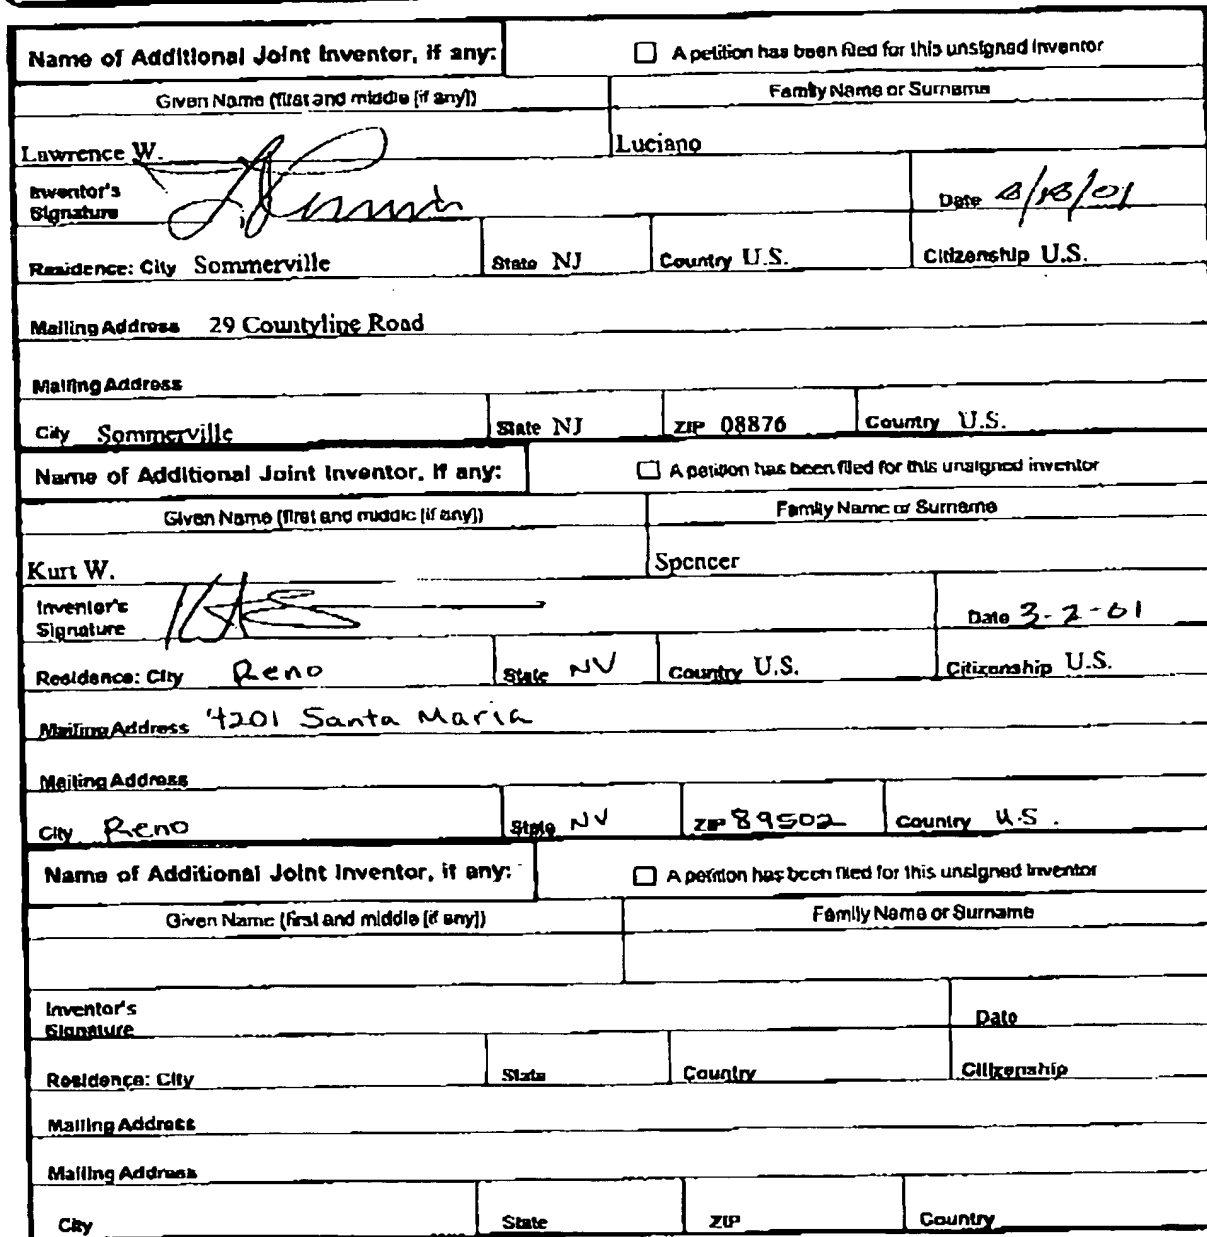 Name of Additional Joint Inventor, if any: A petition has been filed for this unsigned inventor
Given Name (first and middle [if any]) Family Name or Surname
Lawrence W. Luciano
Inventor's
Signature Date
Residence: City Sommerville State NJ Country U.S. Citizenship U.S.
Mailing Address 29 Countyline Road
Mailing Address
City Sommerville State NJ ZIP 08876 Country U.S.
Name of Additional Joint Inventor, if any: A petition has been filed for this unsigned inventor
Given Name (first and middle [if any]) Family Name or Surname
Kurt W. Spencer
Inventor's
Signature Date 3-2-01
Residence: City Reno State NV Country U.S. Citizenship U.S.
Mailing Address 4201 Santa Maria
Mailing Address
City Reno State NV ZIP 89502 Country U.S.
Name of Additional Joint Inventor, if any: A petition has been filed for this unsigned inventor
Given Name (first and middle [if any]) Family Name or Surname
Inventor's
Signature Date
Residence: City State Country Citizenship
Mailing Address
Mailing Address
City State ZIP Country